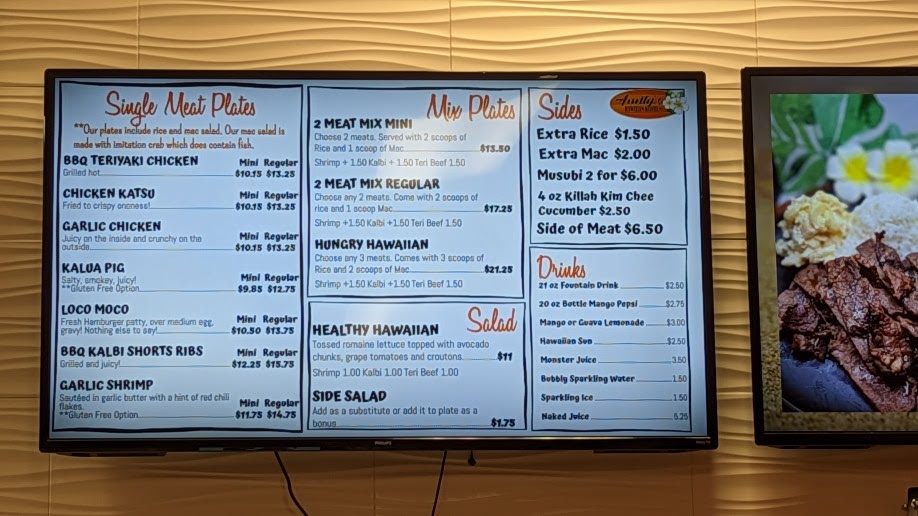 Single Meat Plates
**Our plates include rice and mac salad. Our mac salad is
made with imitation crab which does contain fish.
BBQ TERIYAKI CHICKEN Mini Regular
Grilled hot $10.15 $13.25
CHICKEN KATSU Mini Regular
Fried to crispy ononess! $10.15 $13.25
GARLIC CHICKEN
Juicy on the inside and crunchy on the Mini Regular
outside $10.15 $13.25
KALUA PIG
Salty, smokey, juicy! Mini Regular
**Gluten Free Option $9.85 $12.75
LOCO MOCO
Fresh Hamburger patty, over medium egg, Mini Regular
gravy! Nothing else to say! $10.50 $13.75
BBQ KALBI SHORTS RIBS Mini Regular
Grilled and juicy! $12.25 $15.75
GARLIC SHRIMP
Sautéed in garlic butter with a hint of red chili
flakes. Mini Regular
**Gluten Free Option $11.75 $14.75
Mix Plates
2 MEAT MIX MINI
Choose 2 meats. Served with 2 scoops of
Rice and 1 scoop of Mac $13.50
Shrimp + 1.50 Kalbi + 1.50 Teri Beef 1.50
2 MEAT MIX REGULAR
Choose any 2 meats. Come with 2 scoops of
rice and 1 scoop Mac $17.25
Shrimp +1.50 Kalbi +1.50 Teri Beef 1.50
HUNGRY HAWAIIAN
Choose any 3 meats. Comes with 3 scoops of
Rice and 2 scoops of Mac $21.25
Shrimp +1.50 Kalbi +1.50 Teri Beef 1.50
Salad
HEALTHY HAWAIIAN
Tossed romaine lettuce topped with avocado
chunks, grape tomatoes and croutons $11
Shrimp 1.00 Kalbi 1.00 Teri Beef 1.00
SIDE SALAD
Add as a substitute or add it to plate as a
bonus $1.75
Sides
Extra Rice $1.50
Extra Mac $2.00
Musubi 2 for $6.00
4 oz Killah Kim Chee
Cucumber $2.50
Side of Meat $6.50
Drinks
21 oz Fountain Drink $2.50
20 oz Bottle Mango Pepsi $2.75
Mango or Guava Lemonade $3.00
Hawaiian Sun $2.50
Monster Juice 3.50
Bubbly Sparkling Water 1.50
Sparkling Ice 1.50
Naked Juice 5.25
PHILIPS